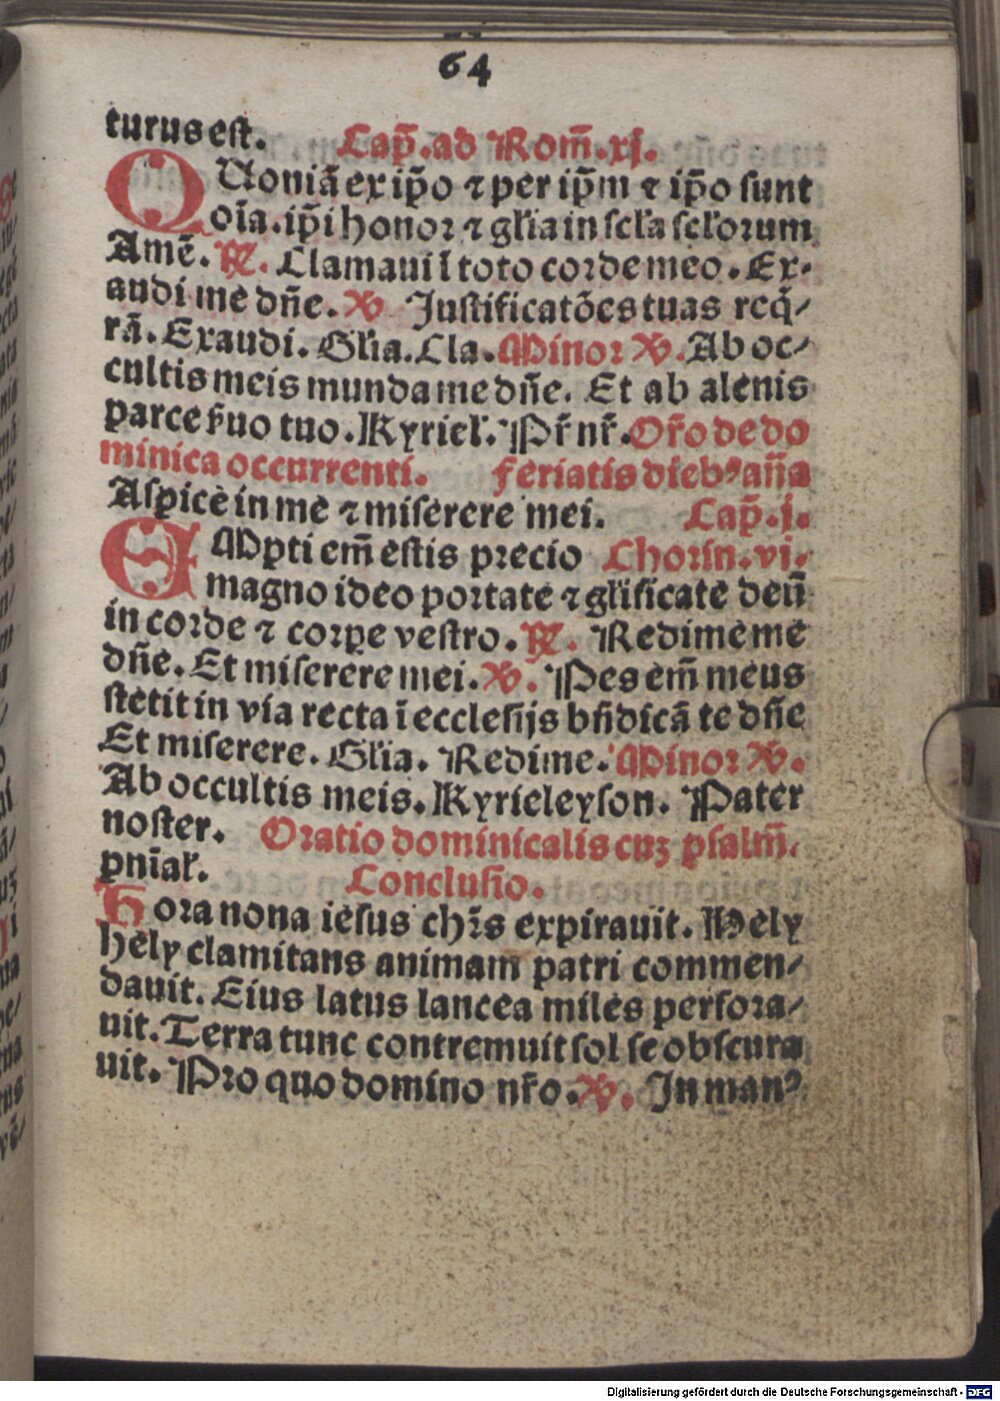 64
turus est. Cap̄. ad Rom̄. xj.
QUoniā ex ip̄o ⁊ per ip̄m ⁊ ip̄o sunt
oīa. ip̄i honor ⁊ gl'ia in scl'a scl'orum
Amē. ℟. Clamaui ī toto corde meo. Ex-
audi me dn̄e. ℣ Justificatōes tuas req̄/
rā. Exaudi. Gl'ia. Cla. Minor ℣. Ab oc/
cultis meis munda me dn̄e. Et ab alenis
parce s̄uo tuo. Kyriel'. Pr̄ nr̄. Or̄o de do
minica occurrenti. Feriatis dieb⁹ an̄a
Aspice in me ⁊ miserere mei. Cap̄. j.
EMpti em̄ estis precio Chorin. vi.
magno ideo portate ⁊ gl'ificate deū
in corde ⁊ corpe vestro. ℟. Redime me
dn̄e. Et miserere mei. ℣. Pes em̄ meus
stetit in via recta ī ecclesijs bn̄dicā te dn̄e
Et miserere. Gl'ia. Redime. Minor ℣.
Ab occultis meis. Kyrieleyson. Pater
noster. Oratio dominicalis cuʒ psalm̄.
pnīal'. Conclusio.
Hora nona iesus chr̄s expirauit. Hely
hely clamitans animam patri commen/
dauit. Eius latus lancea miles perfora/
uit. Terra tunc contremuit sol se obscura
uit. Pro quo domino nr̄o. ℣. In man⁹
Digitalisierung gefördert durch die Deutsche Forschungsgemeinschaft - DFG